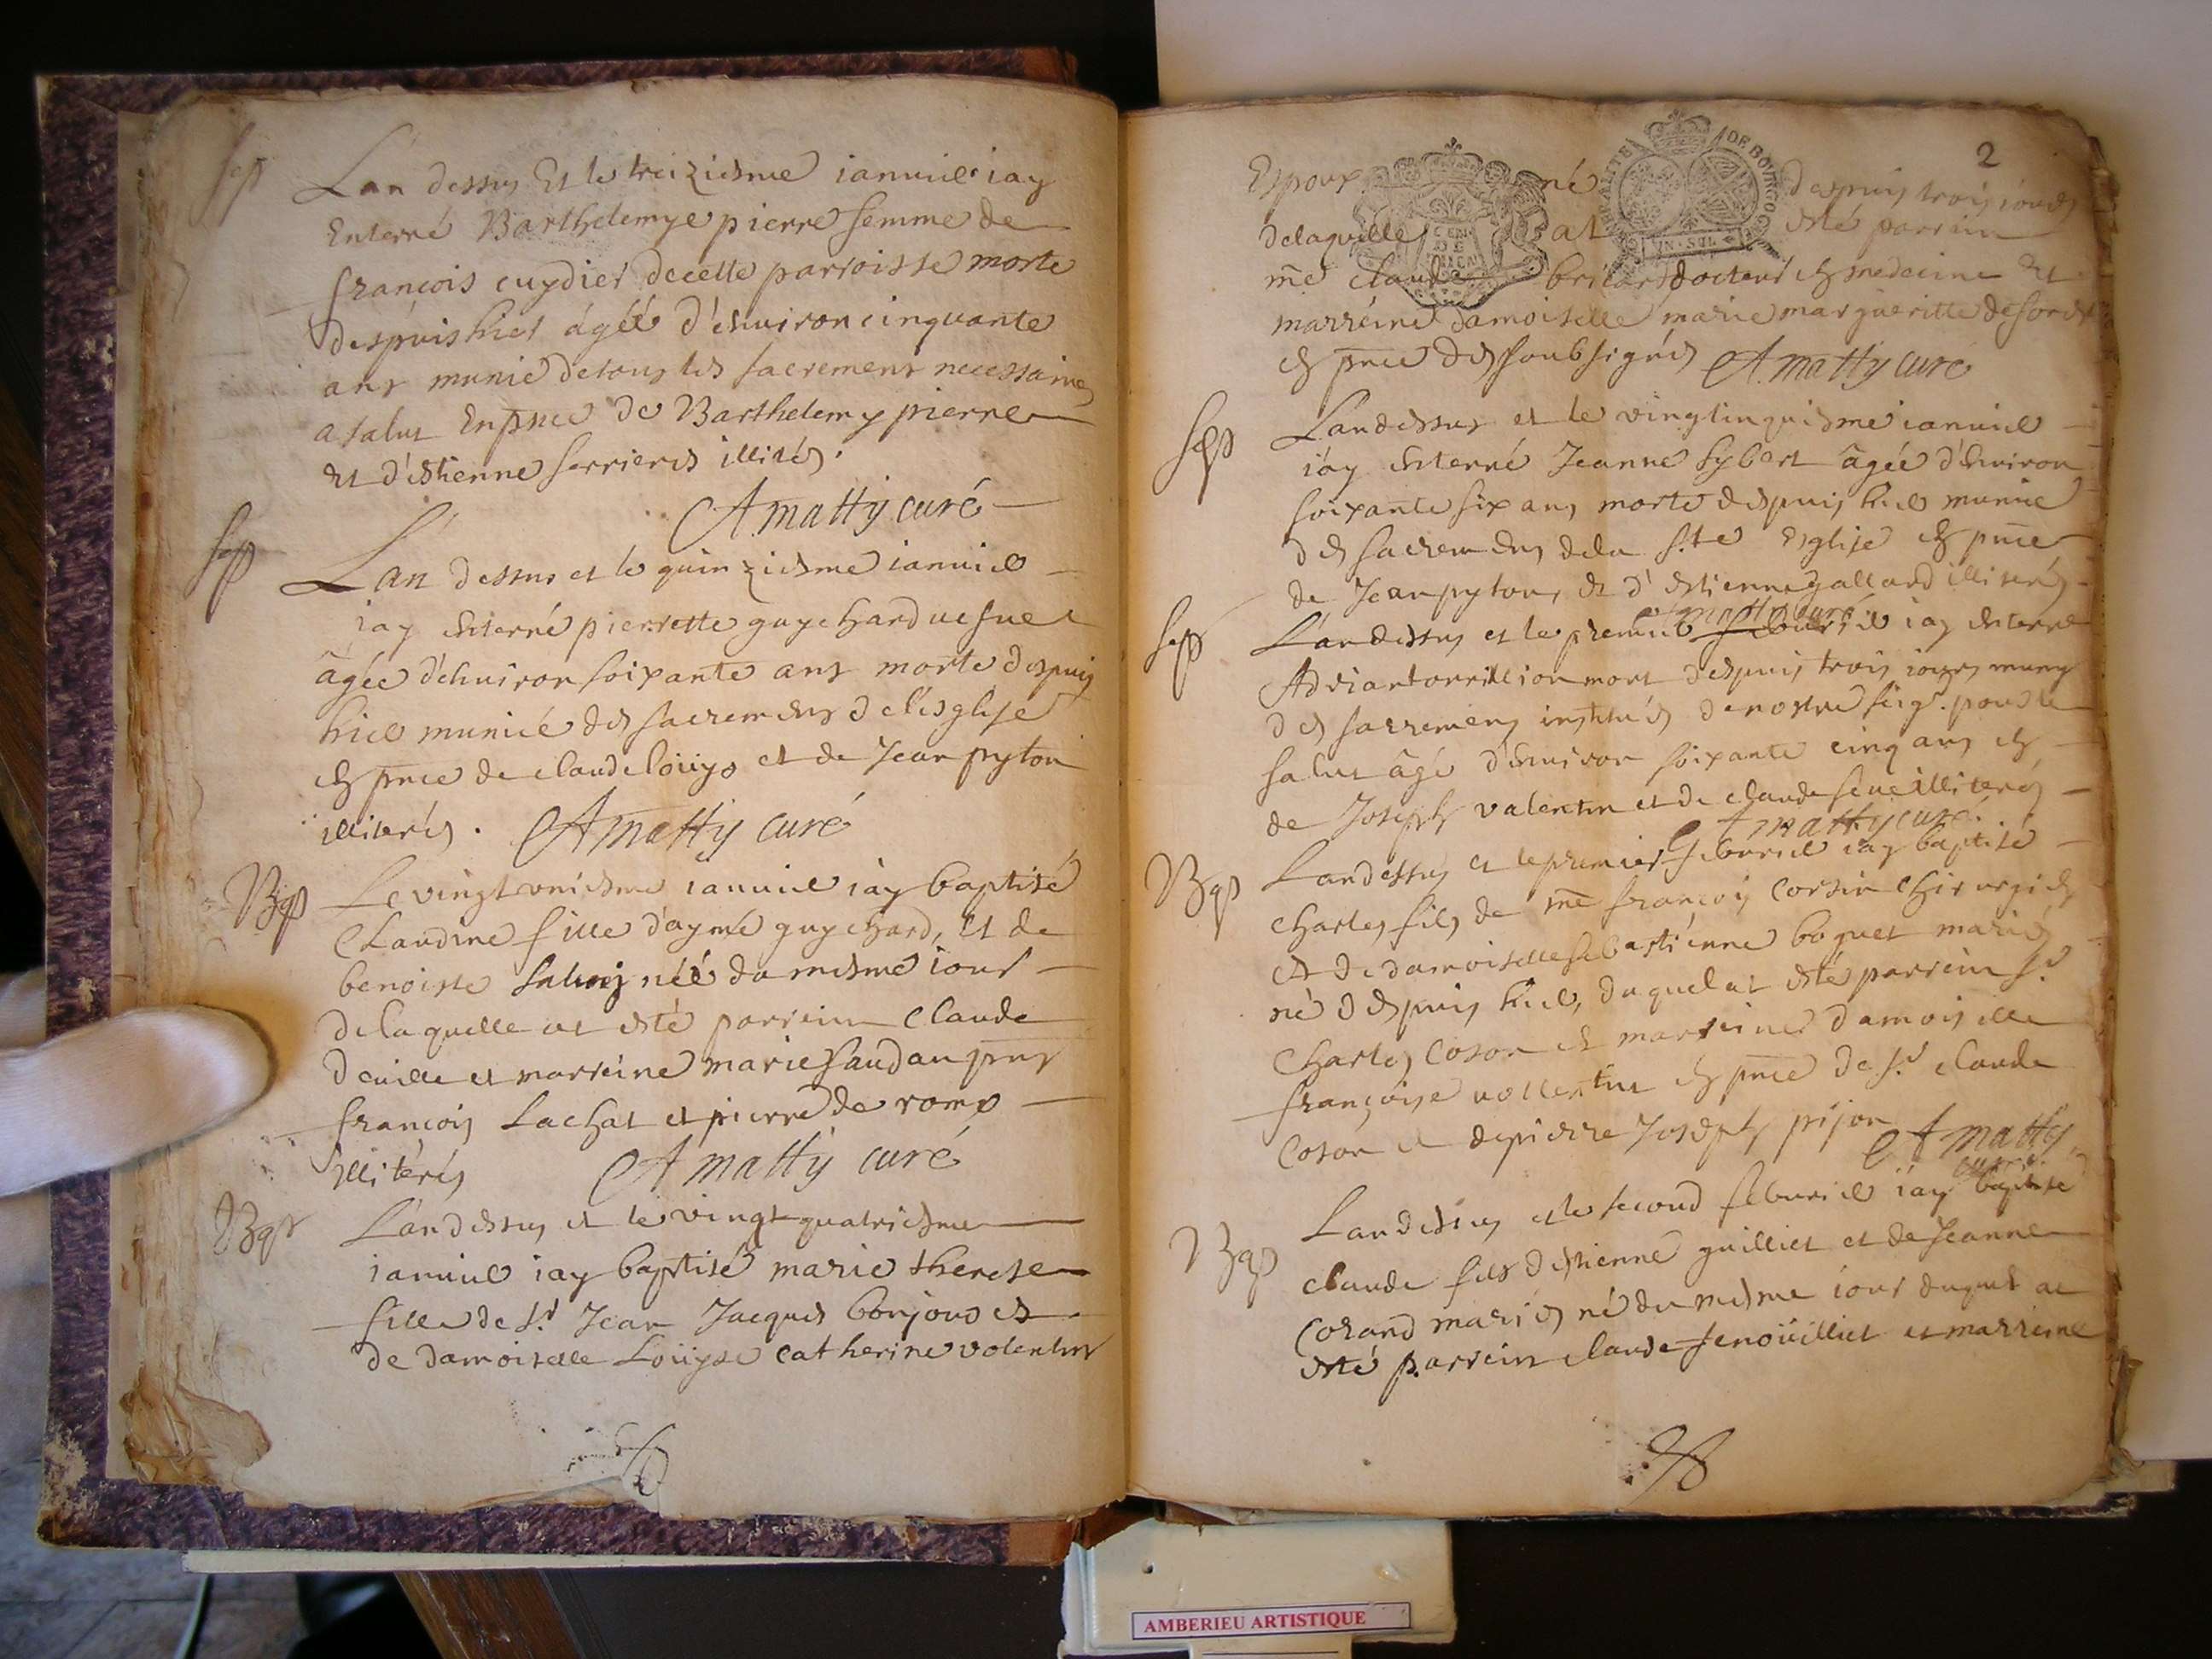 Sep
Lan dessus Et le treiziesme ianuier iay
Enterré Barthelemye pierre femme de
françois cuydier decette parroisse morte
despuis hier agéé d'enuiron cinquante
ans munie detous les sacremens necessaires
a salut Enpnce de Barthelemy pierre
Et d'estienne ferrieres illités.
A matty curé
Sep
Lan dessus et le quinziesme ianuier
iay enterré pierrette guychard uefue
âgée d'enuiron soixante ans morte despuis
hier munié des sacremens de l'esglise
en pnce de claude loüys et de Jean pyton
illiterés. A matty curé
Bap
Le vingt vniesme ianuier iay baptisé
Claudine fille d'aymé guychard, et de
benoiste néé du mesme iour
delaquelle at esté parrein Claude
deuille et marreine marie pnts
françois Lachat et pierre de rome
Illitérés A matty curé
Bap
L'andessus et le vingt quatriesme
ianuier iay baptisé marie therese
fille de Sr Jean Jacques bonjour et
de damoiselle Loüyse catherine volentin
2
Espoux né despuis trois iours
delaquelle at esté parrein
me claude docteur en medecine et
marreine damoiselle marie margueritte
en pnce des soubsignés A. matty curé
RALITE DE BOURGOG
UN · SOL
Sep
Landessus et le ianuier
i'ay enterré Jeanne Sybert âgée d'enuiron
soixante six ans morte despuis hier munie
des sacremens dela S.te Esglise en pnce
de Jean pyton, et d'estienne gallard illiterés
A matty curé
Sep
L'andessus et le premier feburier iay enterré
Adrian mort despuis trois iours muny
des sacremens institués denostre seigr. pour le
salut âgé d'enuiron soixante cinq ans en
de Joseph valentin et de claude illiterés
A matty curé.
Bap
Landessus et le premier feburier iay baptisé
charles fils de me françois Corsin chirurgien
et de damoiselle sebastienne boguet mariés
né despuis hier, duquel at esté parrein Sr.
Charles Coson et marreine damoiselle
françoise vollentin en pnce de Sr. claude
Coson et depierre Joseph pijon A matty
curé.
Bap
Landessus et le second feburier iay baptisé
claude fils d'estienne guilliet et de Jeanne
Corand mariés né du mesme iour duquel at
esté parrein claude Jenoüilliet et marreine
AMBERIEU ARTISTIQUE